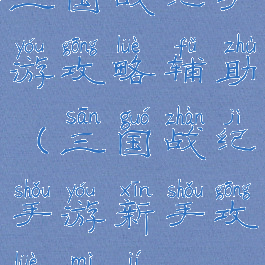 yóu gōng lüè fǔ zhù
游攻略辅助
sān guó zhàn jì
（三国战纪
shǒu yóu xīn shǒu gōng
手游新手攻
lüè mì jí